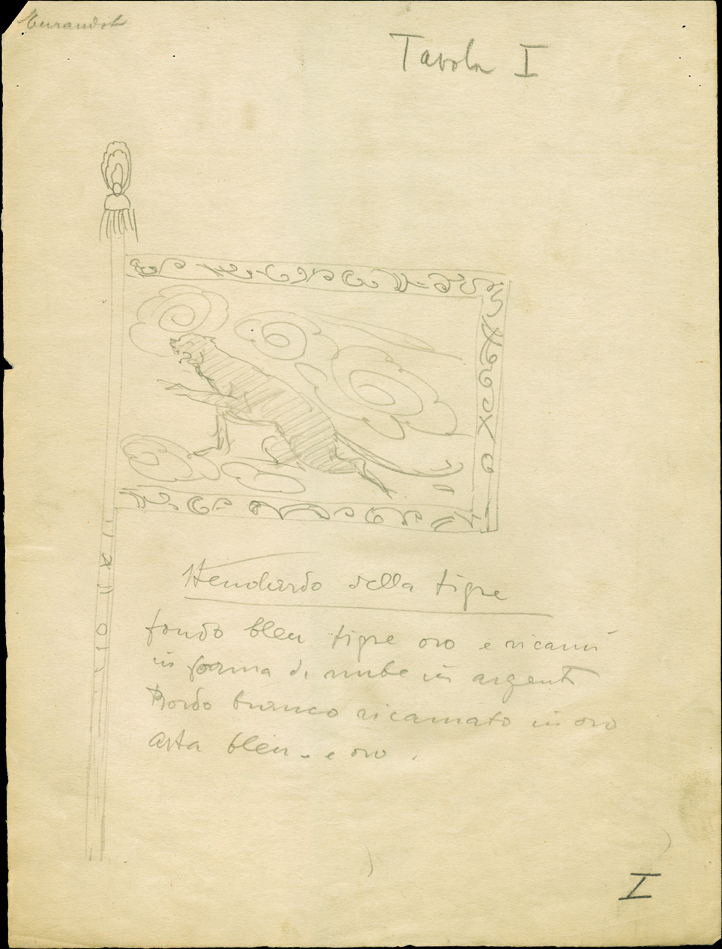 Turandot
Tavola I
Stendardo della tigre
fondo bleu tigre oro e ricami
in forma di nube in argento
Bordo bianco ricamato in oro
asta bleu - e oro.
I